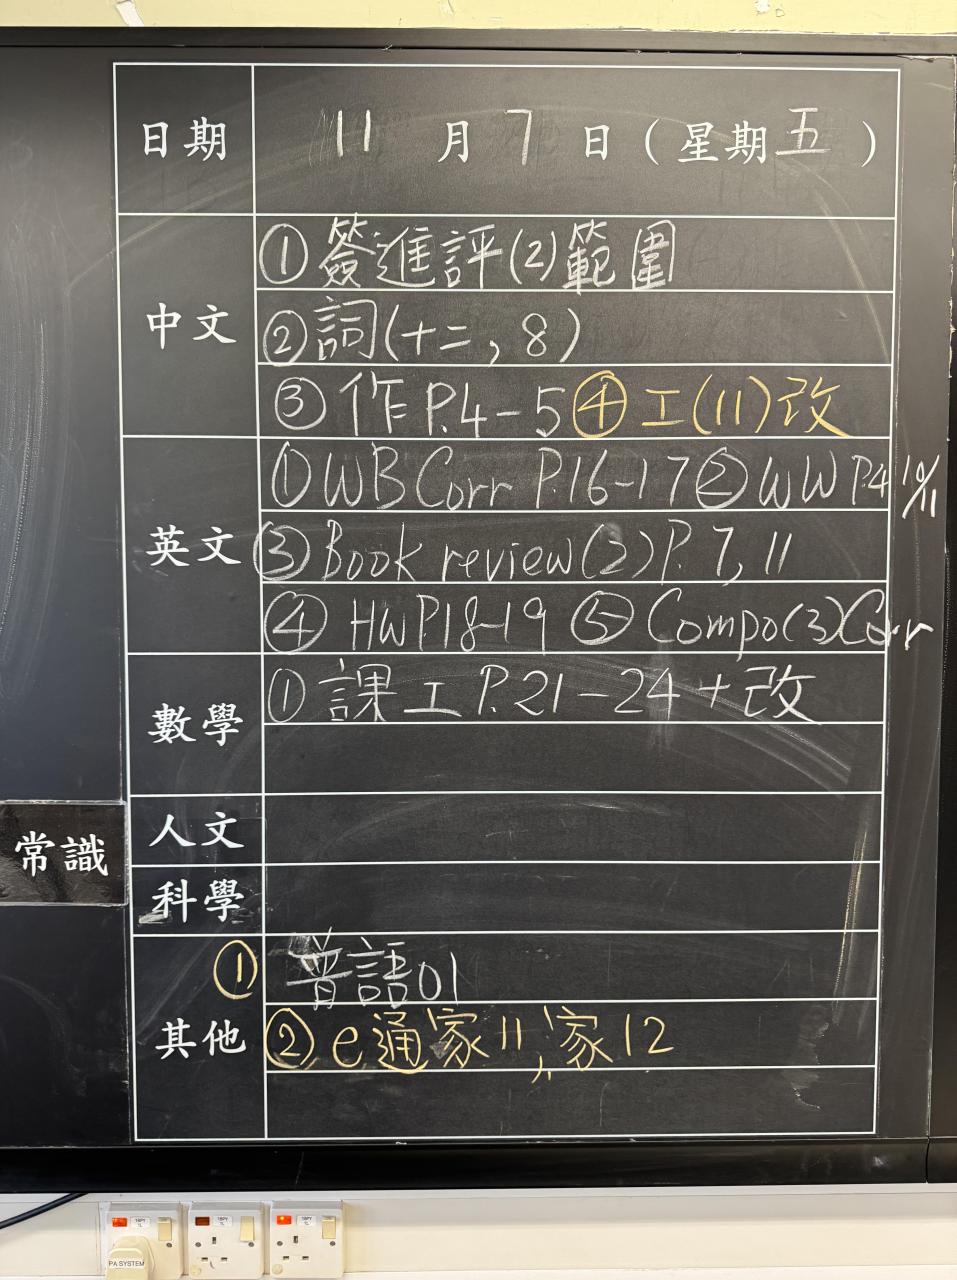 日期 11月7日(星期五)
中文
①簽進評(2)範圍
②詞(十二,8)
③作P.4-5 ④工(11)改
英文
①WB Corr P.16-17 ②WW P.4 10/11
③Book review(2)P.7,11
④HW P.18-19 ⑤Compo(3)Corr
數學
①課工P.21-24+改
常識
人文
科學
其他
①普語01
②e通家11,家12
PA SYSTEM